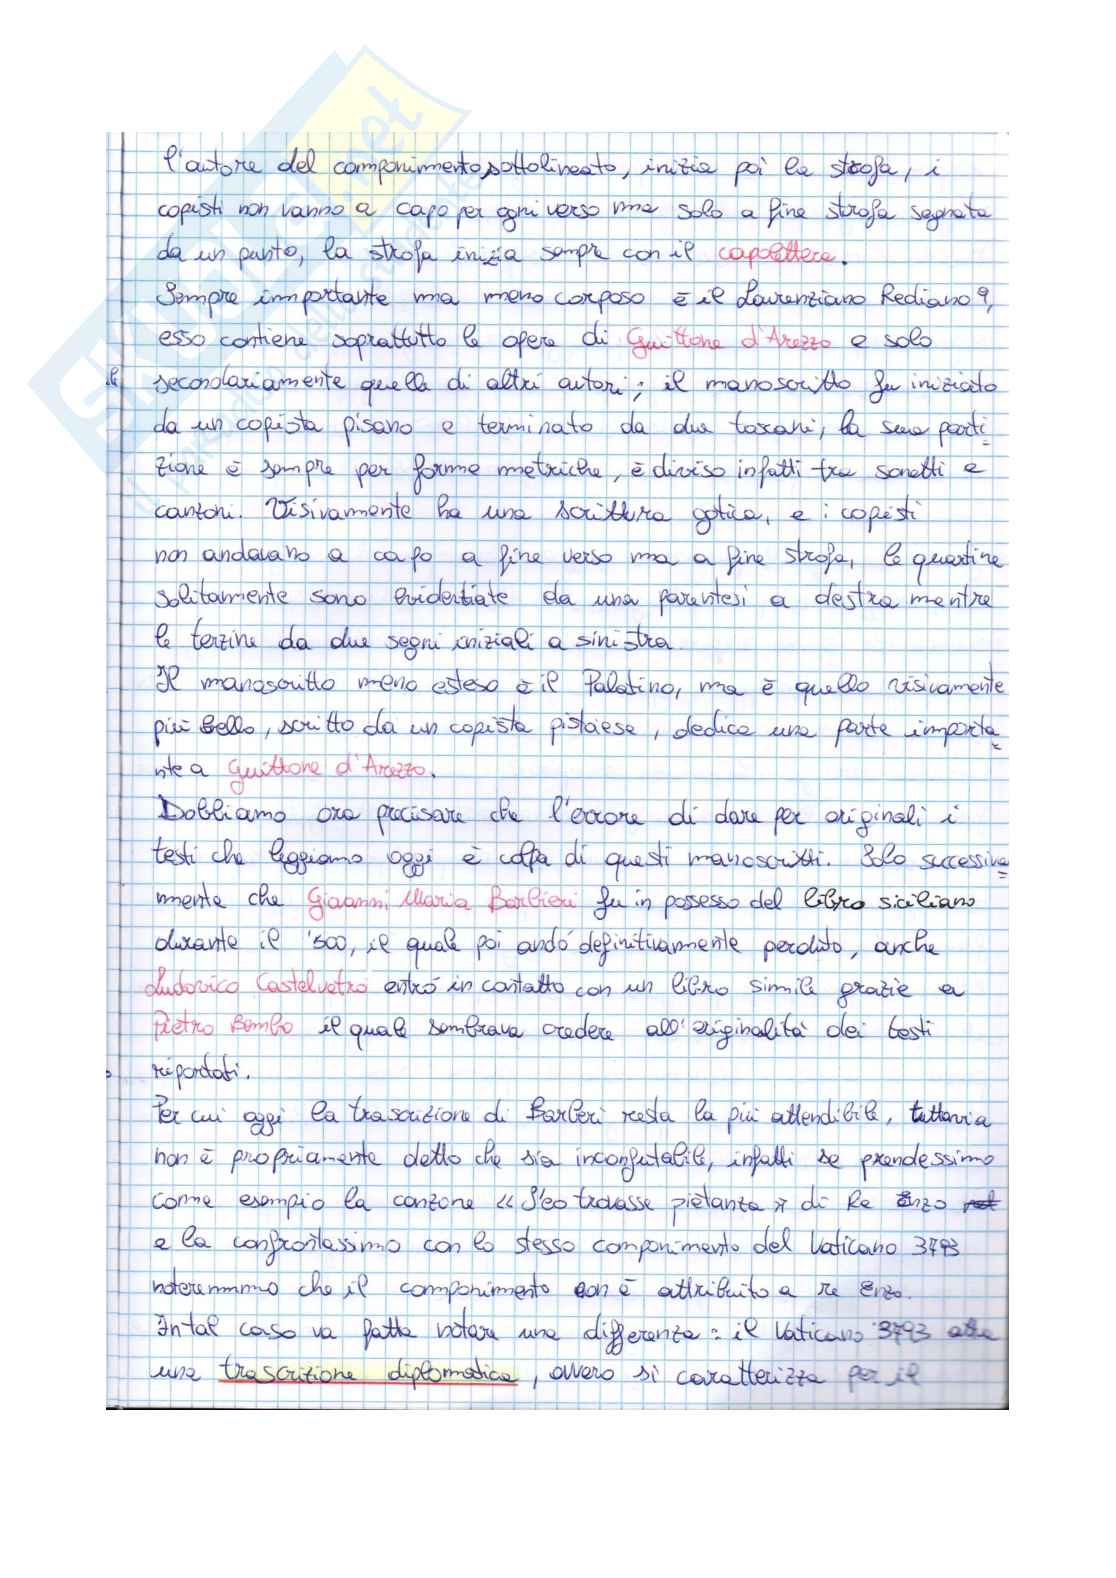 l'autore del componimento sottolineato, inizia poi la strofa, i
copisti non vanno a capo per ogni verso ma solo a fine strofa segnata
da un punto, la strofa inizia sempre con il capolettera.
Sempre importante ma meno corposo è il Laurenziano Rediano 9,
esso contiene soprattutto le opere di Guittone d'Arezzo e solo
secondariamente quelle di altri autori; il manoscritto fu iniziato
da un copista pisano e terminato da due toscani, la sua parti
zione è sempre per forme metriche, è diviso infatti tra sonetti e
canzoni. Visivamente ha una scrittura gotica, e i copisti
non andavano a capo a fine verso ma a fine strofa, le quartine
solitamente sono evidentiate da una parentesi a destra mentre
le terzine da due segni iniziali a sinistra
Il manoscritto meno esteso è il Palatino, ma è quello visivamente
più bello, scritto da un copista pistoiese, dedica una parte importa
nte a Guittone d'Arezzo.
Dobbiamo ora precisare che l'errore di dare per originali i
testi che leggiamo oggi è colpa di questi manoscritti. Solo successiva
mente che Giovanni Maria Barbieri fu in possesso del libro siciliano
durante il '500, il quale poi andò definitivamente perduto, anche
Ludovico Castelvetro entrò in contatto con un libro simile grazie a
Pietro Bembo il quale sembrava credere all'originalità dei testi
riportati.
Per cui oggi la trascrizione di Barberi resta la più attendibile, tuttavia
non è propriamente detto che sia inconfutabile, infatti se prendessimo
come esempio la canzone « S'eo trovasse pietanza » di Re Enzo
e la confrontassimo con lo stesso componimento del Vaticano 3793
noteremmo che il componimento non è attribuito a re Enzo.
In tal caso va fatta notare una differenza: il Vaticano 3793
una trascrizione diplomatica, ovvero si caratterizza per il